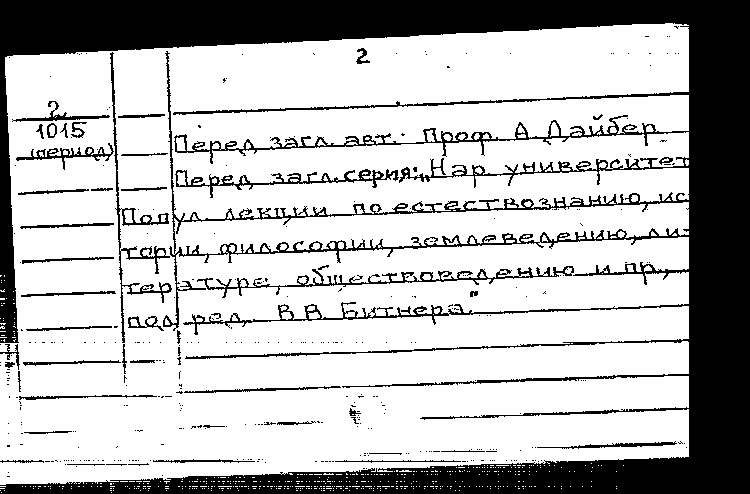 2
2
1015
(период)
Перед загл. авт.: Проф. А. Дайбер
Перед загл. серия: „Нар университет
Попул. лекции по естествознанию, ис
тории, философии, землеведению, ли-
тературе, обществоведению и пр.,
под ред. В В Битнера."